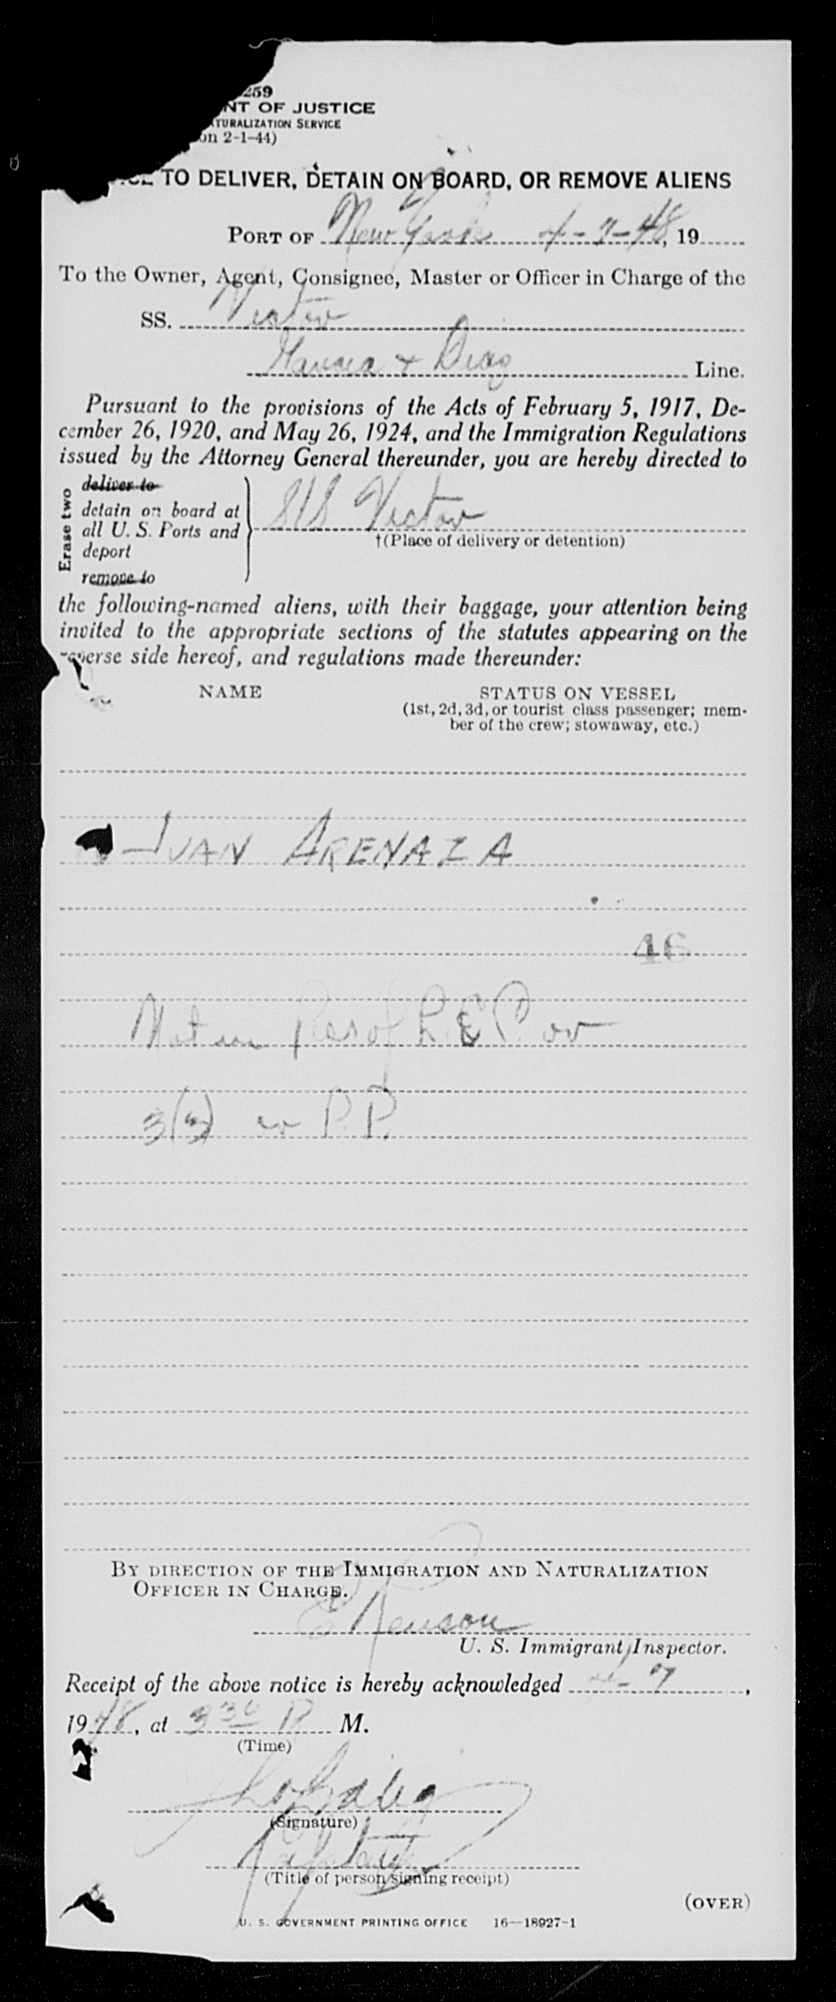 259
NT OF JUSTICE
TURALIZATION SERVICE
on 2-1-44)
CE TO DELIVER, DETAIN ON BOARD, OR REMOVE ALIENS
PORT OF New York 4-7-48, 19
To the Owner, Agent, Consignee, Master or Officer in Charge of the
SS. Victor
Garcia & Diaz Line.
Pursuant to the provisions of the Acts of February 5, 1917, De-
cember 26, 1920, and May 26, 1924, and the Immigration Regulations
issued by the Attorney General thereunder, you are hereby directed to
Erase two
deliver to
detain on board at
all U. S. Ports and
deport
remove to
S/S Victor
†(Place of delivery or detention)
the following-named aliens, with their baggage, your attention being
invited to the appropriate sections of the statutes appearing on the
reverse side hereof, and regulations made thereunder:
NAME
STATUS ON VESSEL
(1st, 2d, 3d, or tourist class passenger; mem-
ber of the crew; stowaway, etc.)
JUAN ARENAZA
46
Not in poss of L.E.P. or
3(5) or P.P.
BY DIRECTION OF THE IMMIGRATION AND NATURALIZATION
OFFICER IN CHARGE.
U. S. Immigrant Inspector.
Receipt of the above notice is hereby acknowledged 4-7,
1948, at 3 30 P M.
(Time)
(Signature)
(Title of person signing receipt)
(OVER)
U. S. GOVERNMENT PRINTING OFFICE 16—18927-1